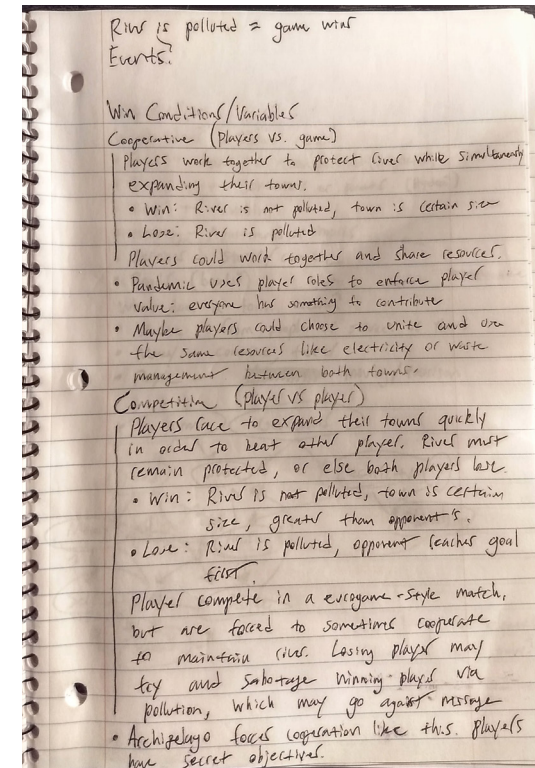 River is polluted = game wins
Events?
Win Conditions/Variables
Cooperative (Players vs. game)
Players work together to protect river while simultaneously
expanding their towns.
• Win: River is not polluted, town is certain size
• Lose: River is polluted
Players could work together and share resources.
• Pandemic uses player roles to enforce player
value: everyone has something to contribute
• Maybe players could choose to unite and use
the same resources like electricity or waste
management between both towns.
Competitive (player vs player)
Players race to expand their towns quickly
in order to beat other player. River must
remain protected, or else both players lose.
• Win: River is not polluted, town is certain
size, greater than opponent's.
• Lose: River is polluted, opponent reaches goal
first.
Player compete in a eurogame-style match,
but are forced to sometimes cooperate
to maintain river. Losing player may
try and sabotage winning player via
pollution, which may go against message
• Archipelago forces cooperation like this. Players
have secret objectives.